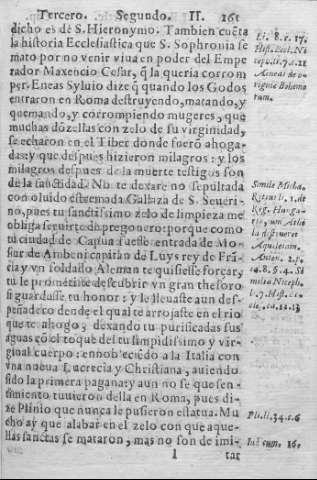 Tercero. Segundo. II. 161
dicho es dē S. Hieronymo. Tambien cuēta
la historia Ecclesiastica que S. Sophronia se
mato por no venir viua en poder del Empe
rador Maxencio Cesar, q̄ la queria corrom
per. Eneas Syluio dize q̄ quando los Godos
entraron en Roma destruyendo, matando, y
quemando, y corrompiendo mugeres, que
muchas dōzellas con zelo de su virginidad,
se echaron en el Tiber donde fuerō ahoga-
das: y que despues hizieron milagros: y los
milagros despues de la muerte testigos son
de la sanctidad. No te dexare no sepultada
con oluido esteemada Gallaza de S. Seueri-
no, pues tu sanctissimo zelo de limpieza me
obliga seguirte de pregonero: porque como
tu ciudad de Capua fuesse entrada de Mo-
sur de Ambeni capitan de Luys rey de Frā-
cia y vn soldado Aleman te quisiesse forçar,
tu le prometiste descubrir vn gran thesoro
si guardasse tu honor: y le lleuaste a un des-
peñadero dende el qual te arrojaste en el rio
que te ahogo, dexando tu purificadas sus
aguas cō el toque del tu limpidissimo y vir-
ginal cuerpo: ennobleciēdo a la Italia con
vna nueua Lucrecia y Christiana, auiendo
sido la primera pagana: y aun no se que sen-
timiento tuuieron della en Roma, pues di-
ze Plinio que nunca le pusieron estatua. Mu
cho ay que alabar en el zelo con que aque-
llas sanctas se mataron, mas no son de imi-
l tar
Li. 8. c. 17.
Hist. Eccl. Ni
cep. li. 7. c. 12
Aeneas de o-
rigine Bohemo
rum.
Simile Micha.
Ritius li. 1. de
Reg. Hunga-
riæ, cum Atti
la destrueret
Aquileiam.
Anton. 2. p.
Si
mile Niceph.
l. 7. Hist. Ec-
cle. ca. 12. 13
Pli. li. 34. c. 6
Iudicum. 16.